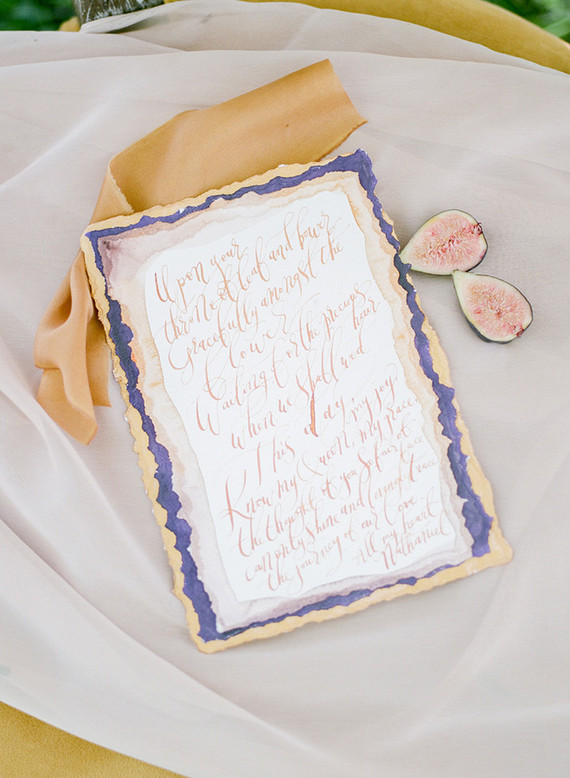 Upon your
throne of leaf and bower
Gracefully amongst the
flower
Waiting for the precious
hour
when we shall wed
This day, my joy,
Know my Queen, my grace,
the thought of you so fair of
face
can only shine and
the journey of our love
All my heart
Nathaniel